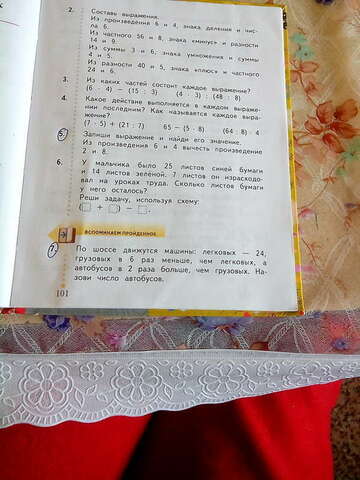 2. Составь выражения.
Из произведения 6 и 4, знака деления и чис-
ла 6.
Из частного 56 и 8, знака «минус» и разности
14 и 9.
Из суммы 3 и 6, знака умножения и суммы
4 и 5.
Из разности 40 и 5, знака «плюс» и частного
24 и 6.
3. Из каких частей состоит каждое выражение?
(6 · 4) − (15 : 3) (4 · 3) : (48 : 8)
4. Какое действие выполняется в каждом выраже-
нии последним? Как называется каждое выра-
жение?
(7 · 5) + (21 : 7) 65 − (5 · 8) (64 : 8) · 4
5. Запиши выражение и найди его значение.
Из произведения 6 и 4 вычесть произведение
2 и 8.
6. У мальчика было 25 листов синей бумаги
и 14 листов зелёной. 7 листов он израсходо-
вал на уроках труда. Сколько листов бумаги
у него осталось?
Реши задачу, используя схему:
(□ + □) − □.
ВСПОМИНАЕМ ПРОЙДЕННОЕ
7. По шоссе движутся машины: легковых — 24,
грузовых в 6 раз меньше, чем легковых, а
автобусов в 2 раза больше, чем грузовых. На-
зови число автобусов.
101